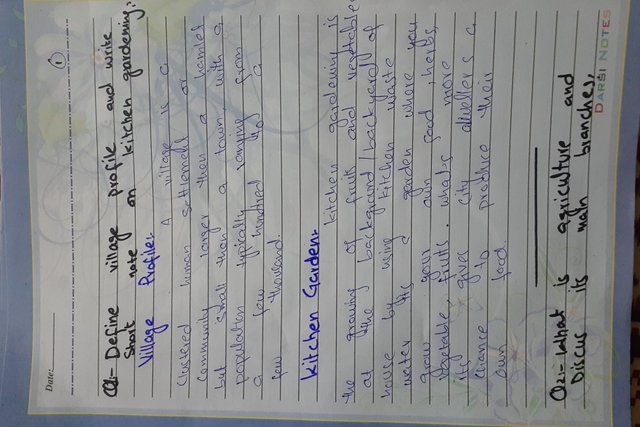 Date:
1
Q1:- Define village profile and write
Short note on kitchen gardening:
Village Profile:
A village is a
Clustered human settlement or
Community larger then a hamlet
but small then a town with a
population typically varying from
a few hundred to a
few thousand.
Kitchen Garden:
Kitchen gardening is
the growing of fruits and vegetables
at the background/backyard of
house by using kitchen waste
water its a garden where you
grow your own food, herbs,
vegetable, fruits. whats more
its gives city dwellers a
chance to produce their
own food.
Q2:- What is agriculture and
Discus its main branches.
DARSI NOTES